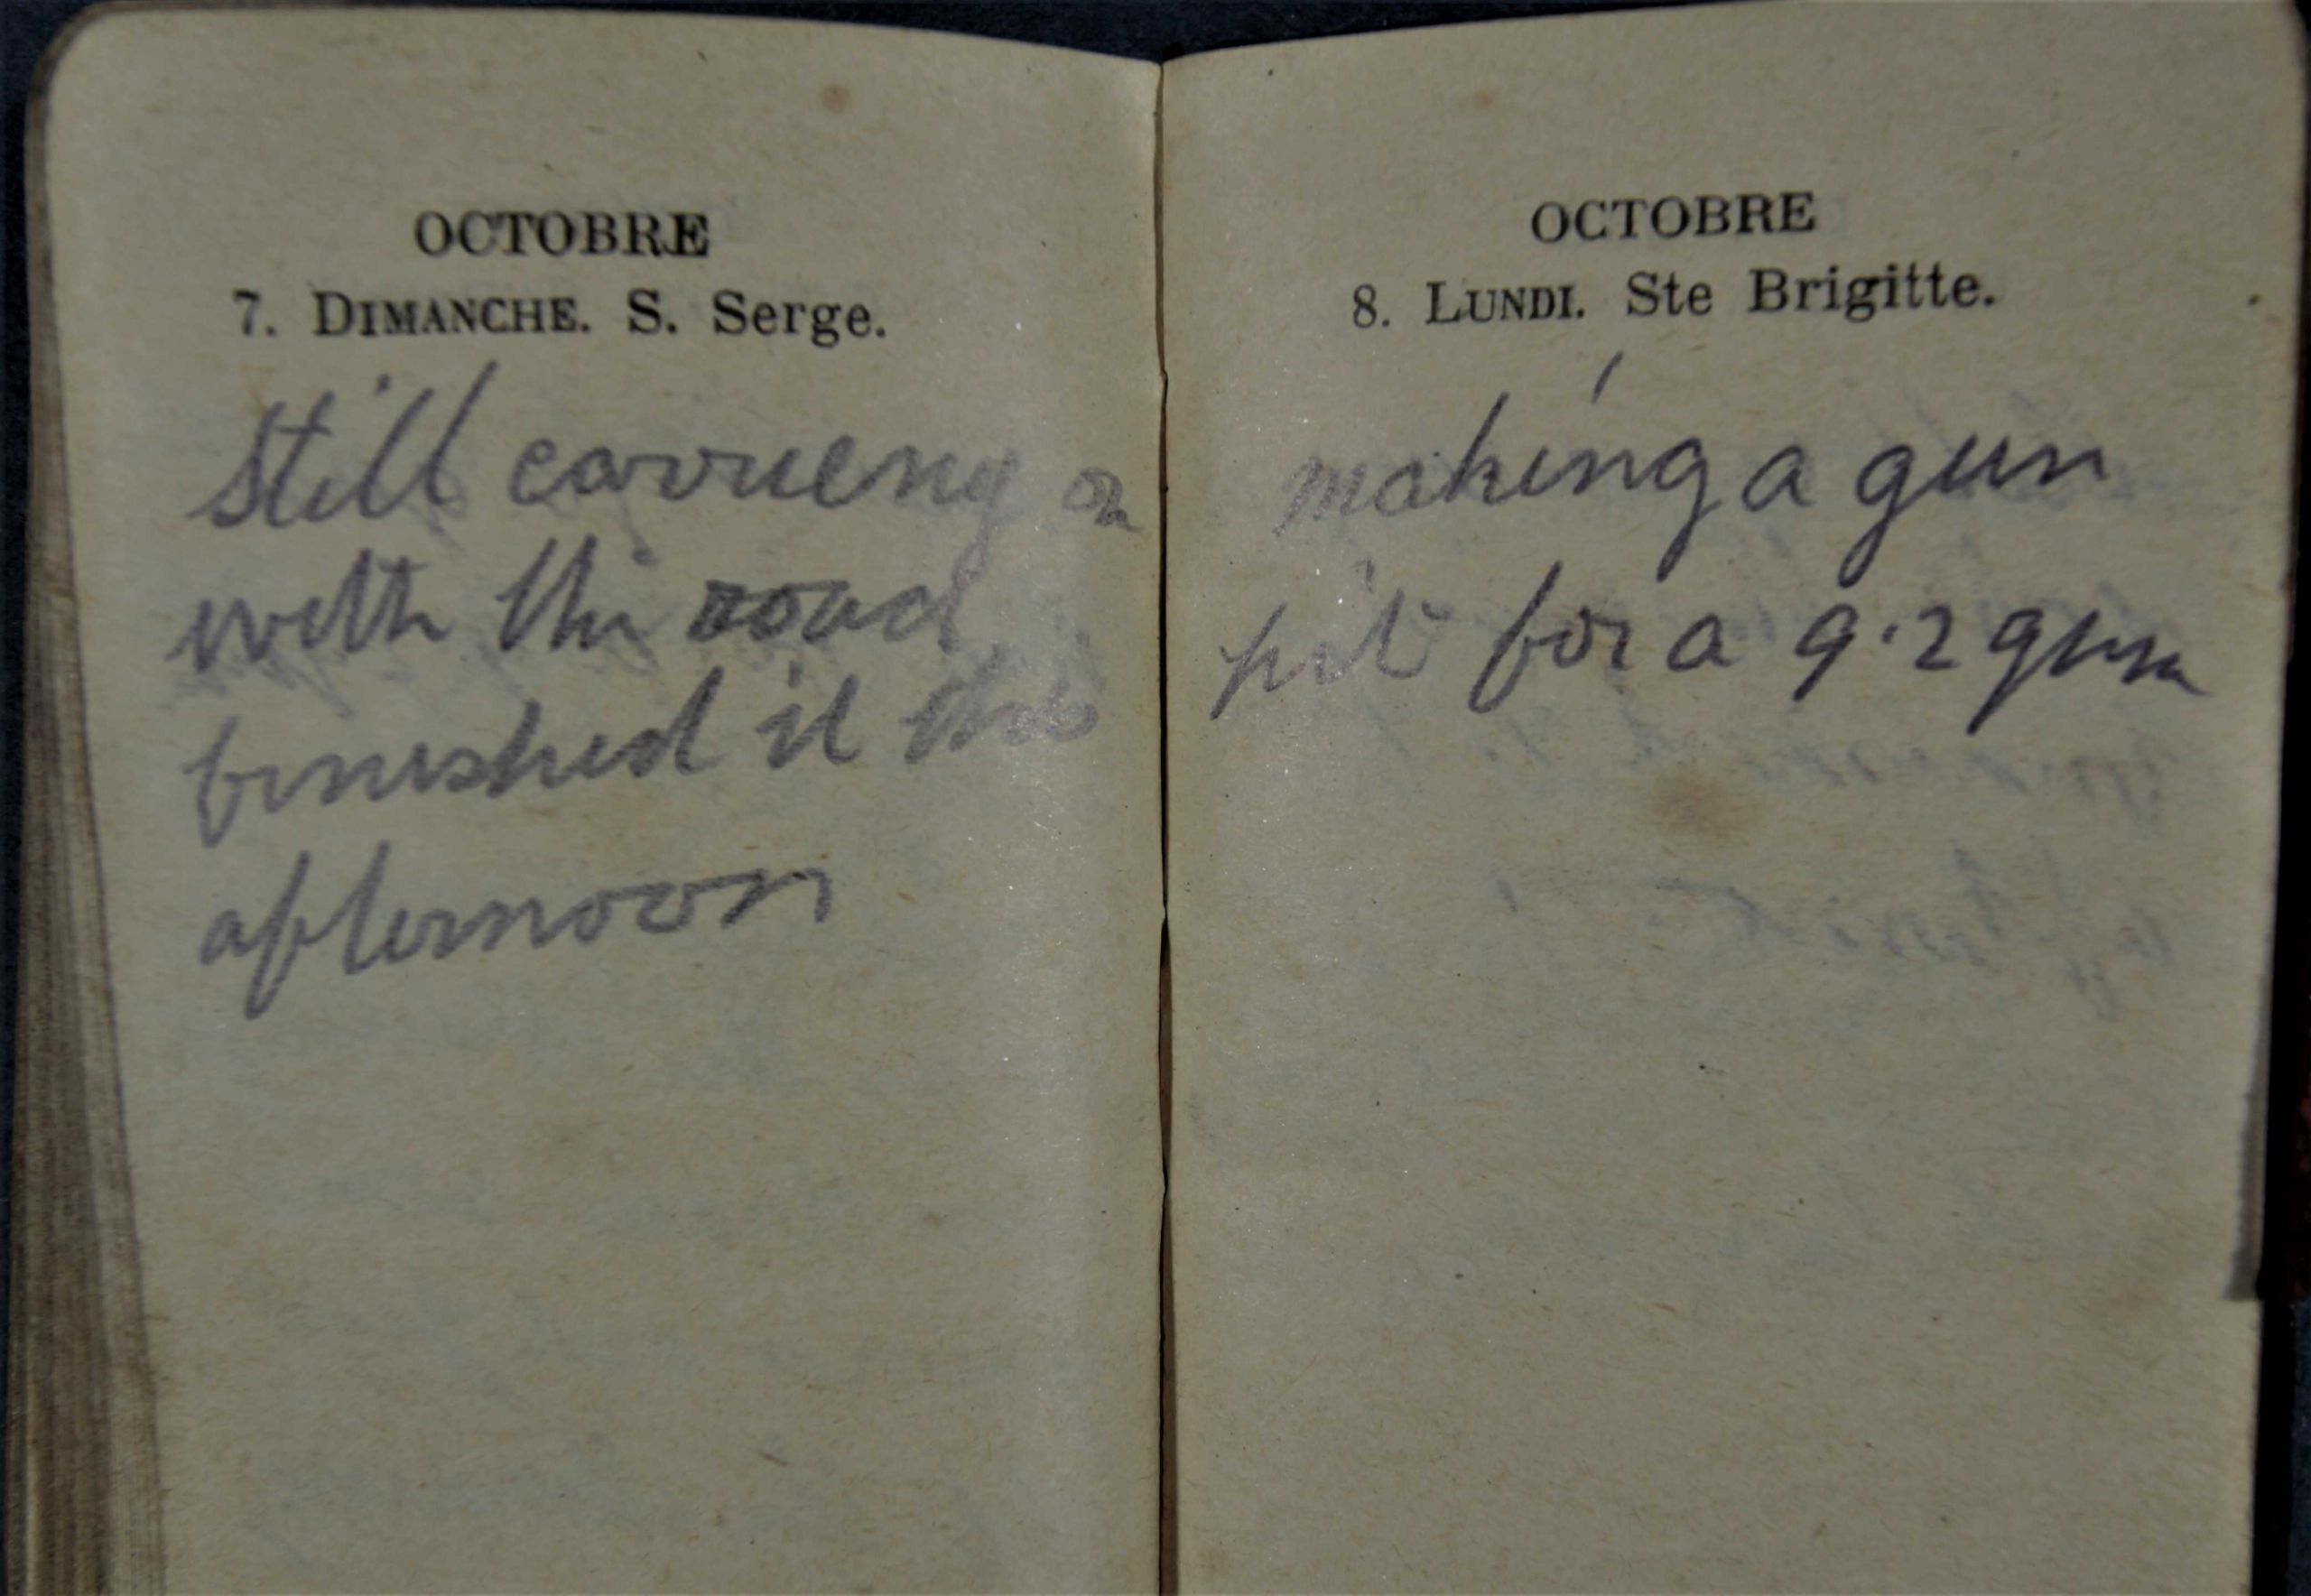 OCTOBRE
7. DIMANCHE. S. Serge.
Still carrieng on
with the road
finished it this
afternoon
OCTOBRE
8. LUNDI. Ste Brigitte.
making a gun
pit for a 9.2 gun